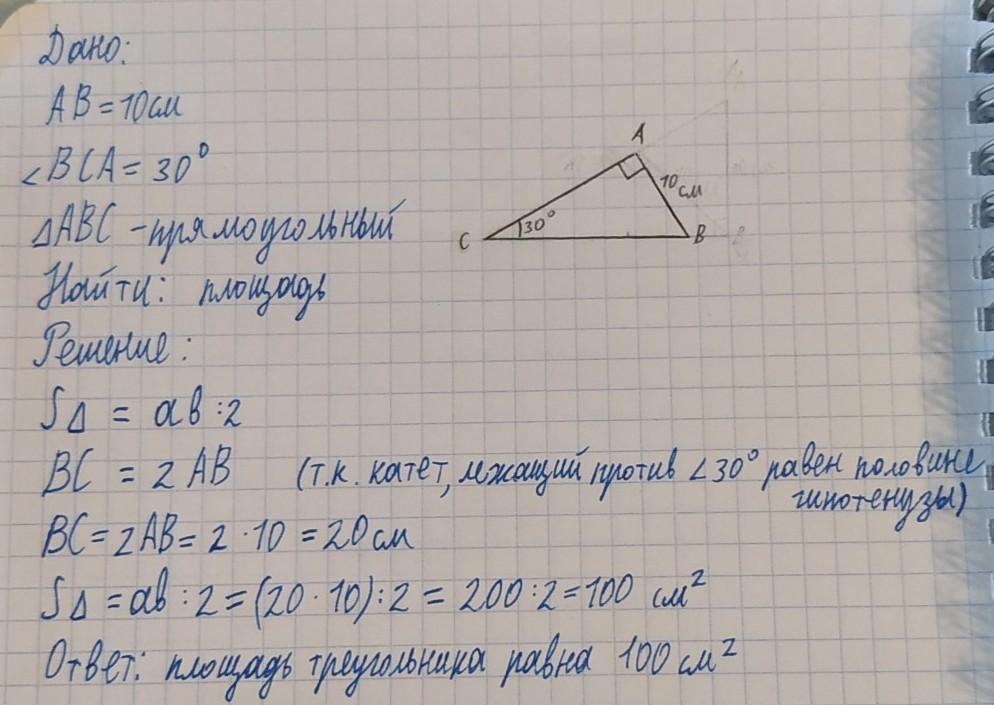 Дано:
AB = 10 см
∠BCA = 30°
△ABC - прямоугольный
Найти: площадь
Решение:
S△ = ab :2
BC = 2 AB (т.к. катет, лежащий против ∠30° равен половине
гипотенузы)
BC = 2AB = 2 · 10 = 20 см
S△ = ab : 2 = (20 · 10) : 2 = 200 : 2 = 100 см²
Ответ: площадь треугольника равна 100 см²
A
10 см
C
30°
B